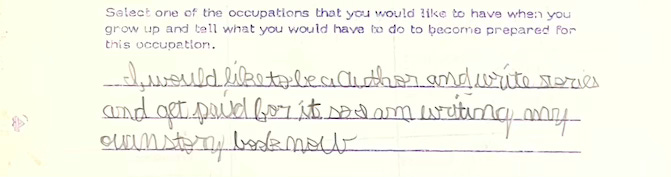 Select one of the occupations that you would like to have when you
grow up and tell what you would have to do to become prepared for
this occupation.
I would like to be a Author and write stories
and get paid for it so I am writing my
own story book now